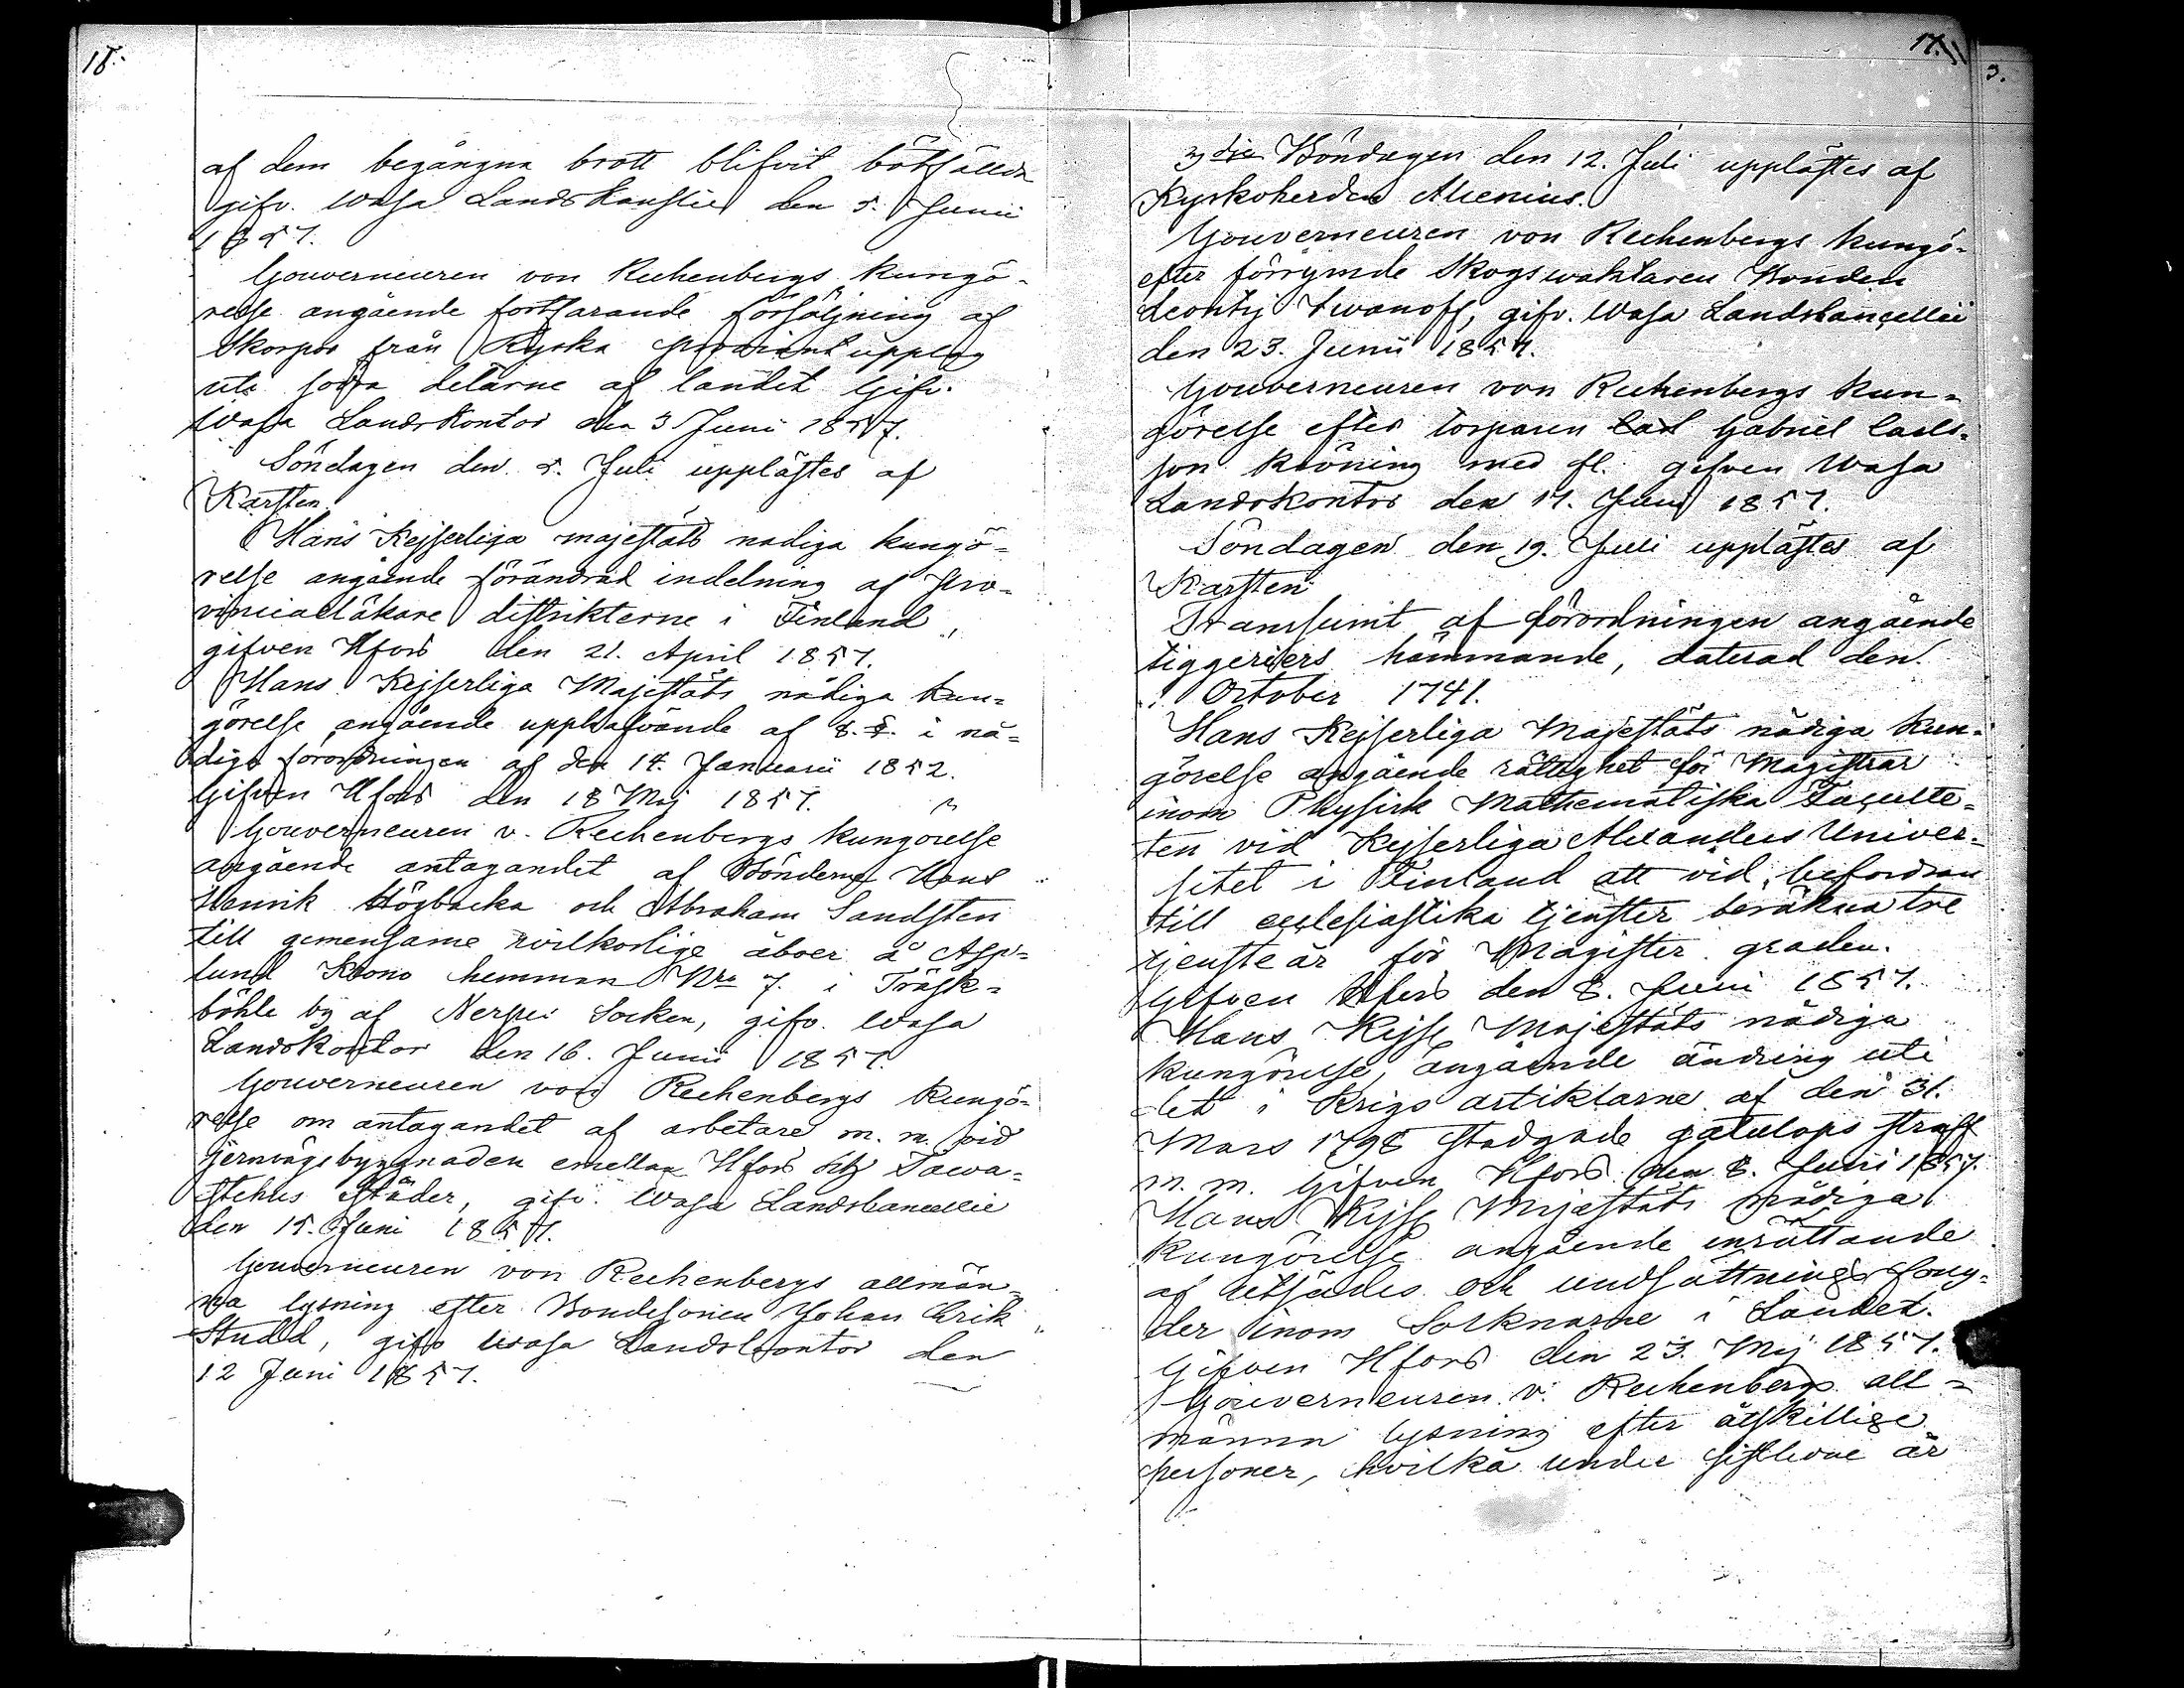 18.
af dem begångna brott blifvit bötfällda
gifv. Wasa Landskansliet den 5. Junii
1857.
Gouverneuren von Rechenbergs kungö-
relse angående fortfarande försäljning af
Skorpor från Ryska proviant upplag
uti södra delarne af landet Gifv.
Wasa Landskontor den 3 Juni 1857.
Söndagen den 5. Juli upplästes af
Karsten
Hans Kejserliga majestäts nadiga kungö-
relse angående förändrad indelning af Pro-
vincialläkare distrikterne i Finland,
gifven Hfors den 21. April 1857.
Hans Kejserliga Majestäts nådiga kun-
görelse angående upphäfvande af 8. §. i nå-
diga förordningen af den 14. Januarii 1852.
Gifven Hfors den 18 Maj 1857.
Gouverneuren v. Rechenbergs kungörelse
angående antagandet af Bönderne Hans
Henrik Högbacka och Abraham Sandsten
till gemensame wilkorlige åboer å Asp-
lund Krono hemman Nro 7. i Träsk-
böhle by af Nerpes Socken, gifv. Wasa
Landskontor den 16. Junii 1857.
Gouverneuren von Rechenbergs kungö-
relse om antagandet af arbetare m. m. vid
Jernvägsbyggnaden emellan Hfors och Tawa-
stehus städer, gifv. Wasa Landskancellie
den 15. Juni 1857.
Gouverneuren von Rechenbergs allmän-
na lysning efter Bondesonen Johan Erik
Studd, gifv Wasa Landskontor den
12 Juni 1857.
17.
3dje Böndagen den 12. Juli upplästes af
Kyrkoherden Alcenius.
Gouverneuren von Rechenbergs kungö-
efter förrymde Skogswaktaren Bonden
Leonty Iwanoff, gifv. Wasa Landskancellii
den 23. Junii 1857.
Gouverneuren von Rechenbergs kun-
görelse efter torparen Gabriel Carls-
son Kröning med fl. gifven Wasa
Landskontor den 17. Juni 1857.
Söndagen den 19. Juli upplästes af
Karsten
Transsumt af förordningen angående
tiggeriers hämmande, daterad den
October 1741.
Hans Kejserliga Majestäts nådiga kun-
görelse angående rättighet för Magistrar
inom Physisk Mathematiska Faculte-
ten vid Kejserliga Alexanders Univer-
sitet i Finland att vid befordran
till ecclesiastika tjenster beräkna tre
tjenste år för Magister graden.
Gifven Hfors den 8. Juni 1857.
Hans Kejse Majestäts nådiga
kungörelse, angående ändring uti
det i Krigs artiklarne af den 31.
Mars 1798 stadgade gatulops straff
m. m. Gifven Hfors den 8. Juni 1857.
Hans Kejse Majestäts nådiga
kungörelse angående inrättande
af utsädes och undsättnings fong-
der inom Socknarne i Landet.
Gifven Hfors den 23. Maj 1857.
Gouverneuren v. Rechenbergs all-
männa lysning efter åtskillige
personer, hvilka under sistledne år